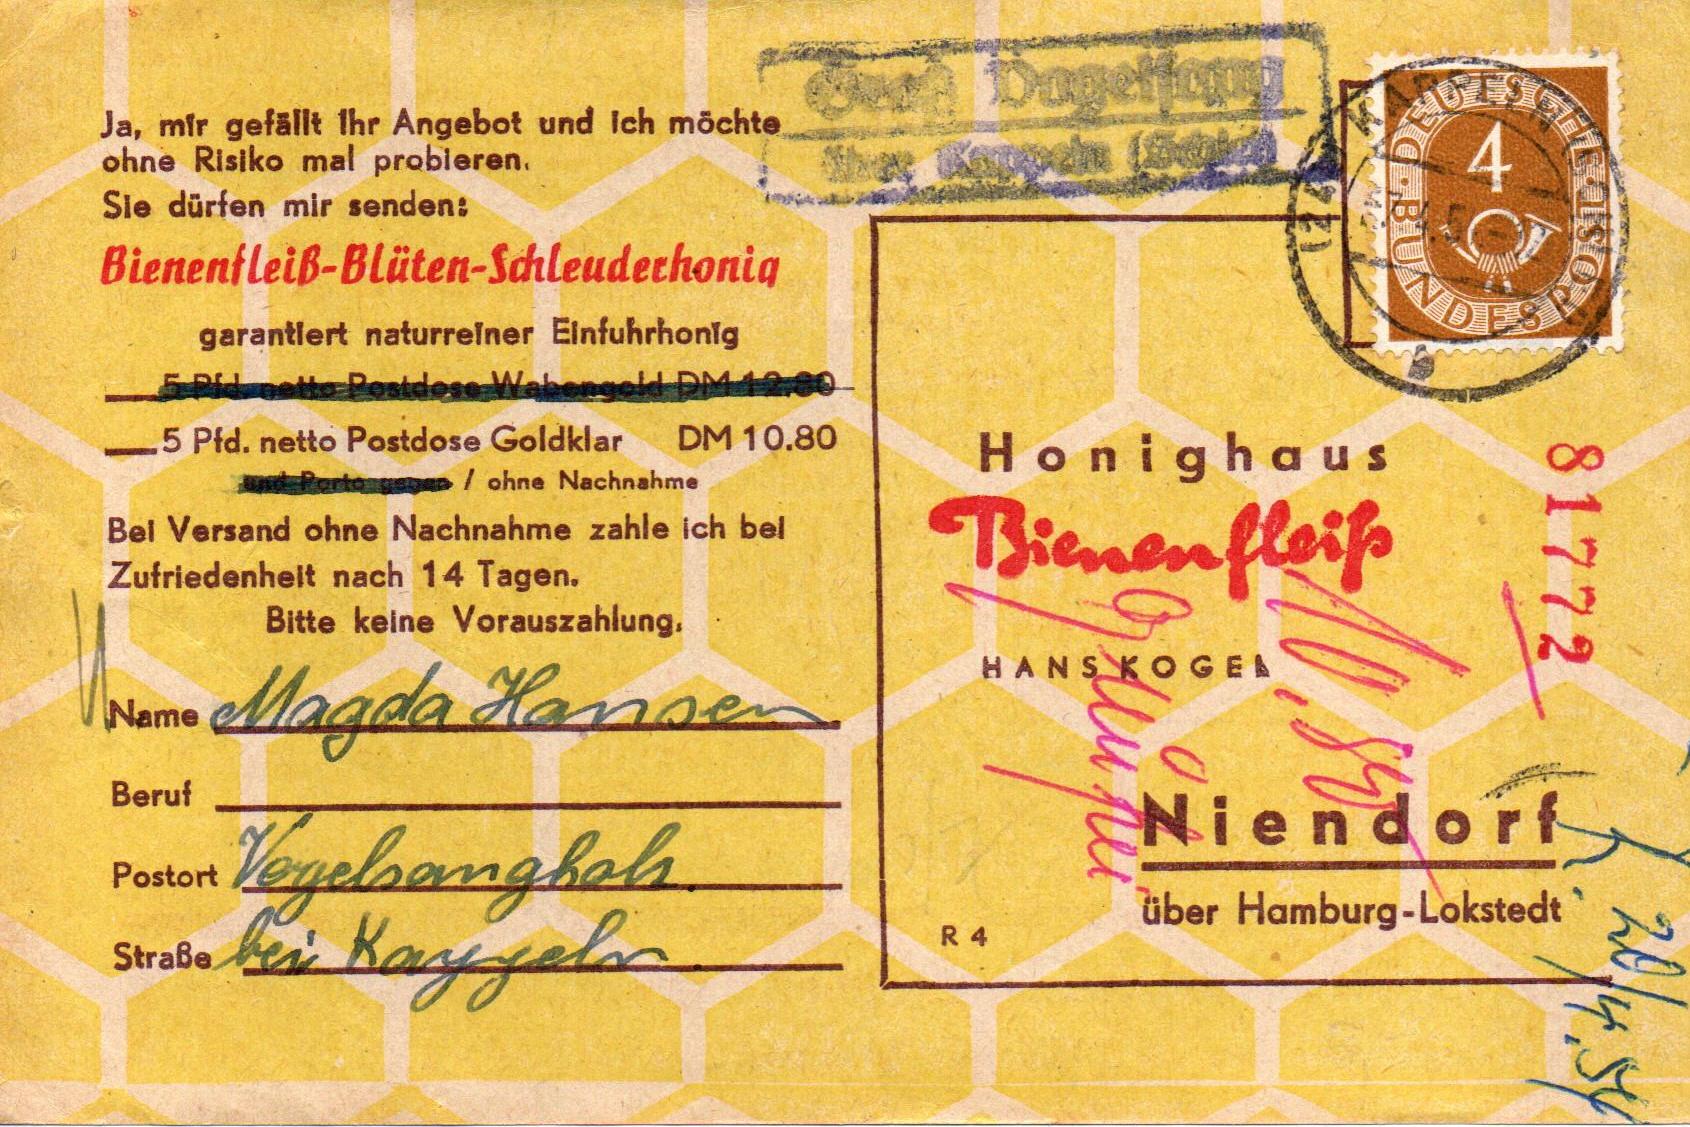 Ja, mir gefällt Ihr Angebot und ich möchte
ohne Risiko mal probieren.
Sie dürfen mir senden:
Bienenfleiß-Blüten-Schleuderhonig
garantiert naturreiner Einfuhrhonig
5 Pfd. netto Postdose Wabengold DM 12.80
5 Pfd. netto Postdose Goldklar DM 10.80
und Porto gegen / ohne Nachnahme
Bei Versand ohne Nachnahme zahle ich bei
Zufriedenheit nach 14 Tagen.
Bitte keine Vorauszahlung.
Name Magda Hansen
Beruf
Postort Vogelsangholz.
Straße bei Kappeln
über Kappeln (Schlei)
DEUTSCHE BUNDESPOST
4
KAPPELN
Honighaus
Bienenfleiß
HANS KOGEL
Niendorf
über Hamburg-Lokstedt
R 4
81772
10,80